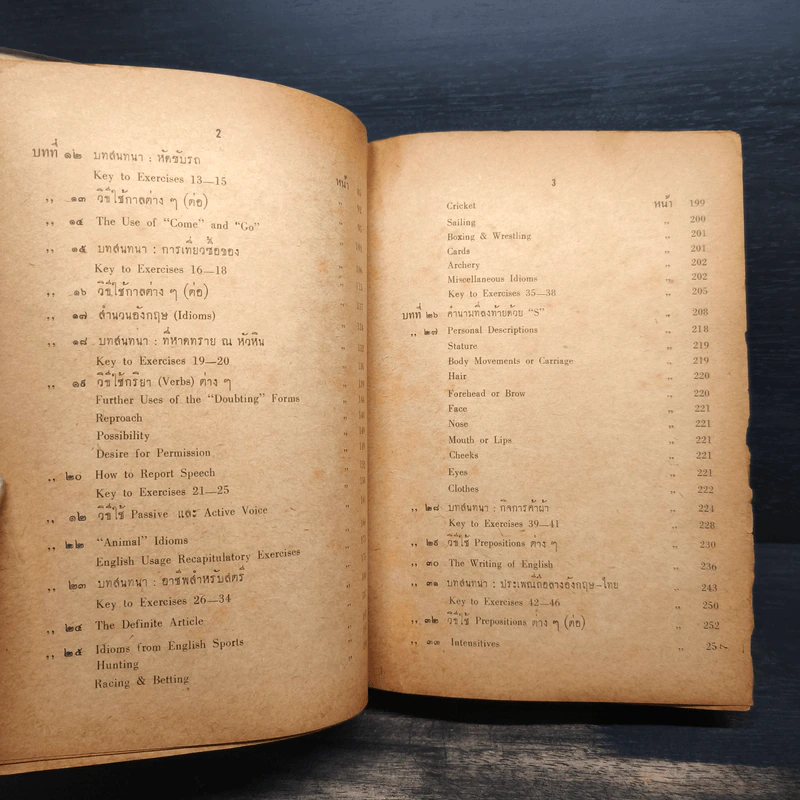 2
บทที่ ๑๒ บทสนทนา : หัดขับรถ
Key to Exercises 13—15 หน้า
,, ๑๓ วิธีใช้กาลต่าง ๆ (ต่อ)
,, ๑๔ The Use of “Come” and “Go”
,, ๑๕ บทสนทนา : การเที่ยวซื้อของ
Key to Exercises 16—18
,, ๑๖ วิธีใช้กาลต่าง ๆ (ต่อ)
,, ๑๗ สำนวนอังกฤษ (Idioms)
,, ๑๘ บทสนทนา : ที่หาดทราย ณ หัวหิน
Key to Exercises 19—20
,, ๑๙ วิธีใช้กริยา (Verbs) ต่าง ๆ
Further Uses of the “Doubting” Forms
Reproach
Possibility
Desire for Permission
,, ๒๐ How to Report Speech
Key to Exercises 21—25
,, ๑๒ วิธีใช้ Passive และ Active Voice
,, ๒๒ “Animal” Idioms
English Usage Recapitulatory Exercises
,, ๒๓ บทสนทนา : อาชีพสำหรับสตรี
Key to Exercises 26—34
,, ๒๔ The Definite Article
,, ๒๕ Idioms from English Sports
Hunting
Racing & Betting
3
Cricket หน้า 199
Sailing ,, 200
Boxing & Wrestling ,, 201
Cards ,, 201
Archery ,, 202
Miscellaneous Idioms ,, 202
Key to Exercises 35—38 ,, 205
บทที่ ๒๖ คำนามที่ลงท้ายด้วย “S” ,, 208
,, ๒๗ Personal Descriptions ,, 218
Stature ,, 219
Body Movements or Carriage ,, 219
Hair ,, 220
Forehead or Brow ,, 220
Face ,, 221
Nose ,, 221
Mouth or Lips ,, 221
Cheeks ,, 221
Eyes ,, 221
Clothes ,, 222
,, ๒๘ บทสนทนา : กิจการค้าผ้า ,, 224
Key to Exercises 39—41 ,, 228
,, ๒๙ วิธีใช้ Prepositions ต่าง ๆ ,, 230
,, ๓๐ The Writing of English ,, 236
,, ๓๑ บทสนทนา : ประเพณีถือลางอังกฤษ–ไทย ,, 243
Key to Exercises 42—46 ,, 250
,, ๓๒ วิธีใช้ Prepositions ต่าง ๆ (ต่อ) ,, 252
,, ๓๓ Intensitives ,,